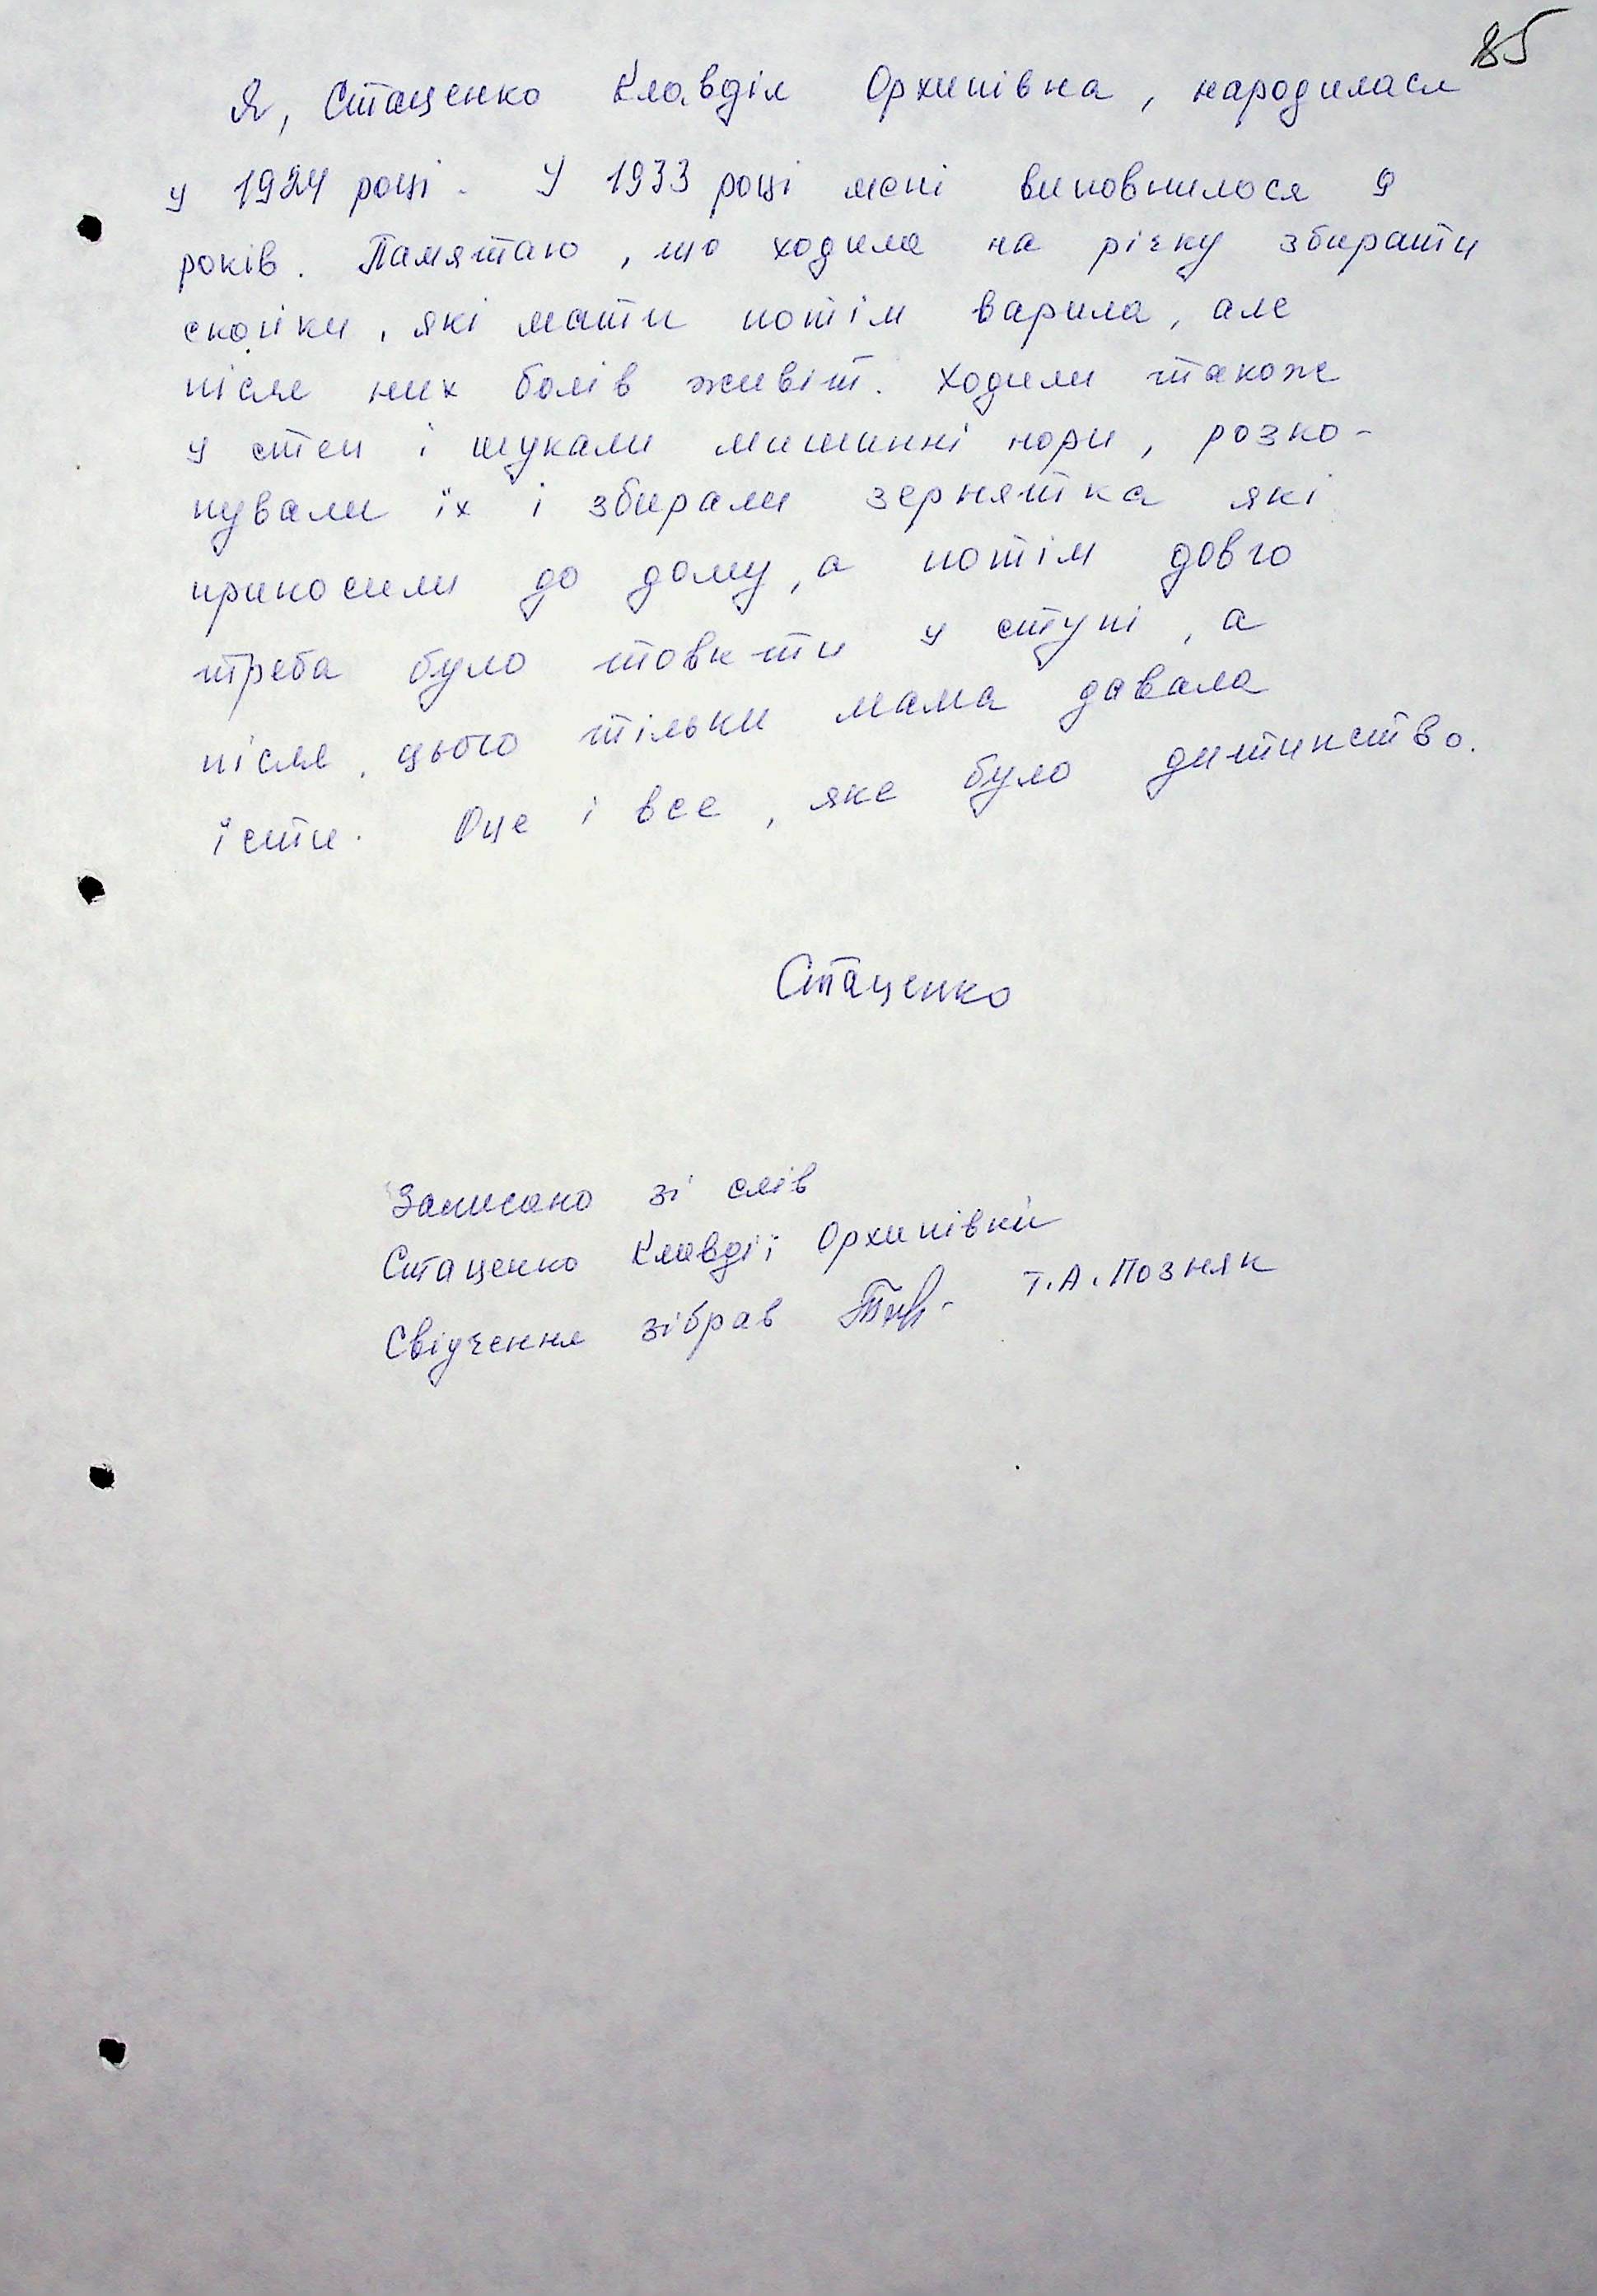 85
Я, Стаценко Клавділ Орхипівна, народилася
у 1924 році. У 1933 році мені виповнилося 9
років. Памятаю, що ходила на річку збирати
скойки, які мати потім варила, але
після них болів живіт. Ходили також
у степ і шукали мишинні нори, розко-
пували їх і збирали зернятка які
приносили до дому, а потім довго
треба було товкти у ступі, а
після цього тільки мама давала
їсти. Оце і все, яке було дитинство.
Стаценко
Записано зі слів
Стаценко Клавдії Орхипівни
Свідчення зібрав Т.А. Позняк